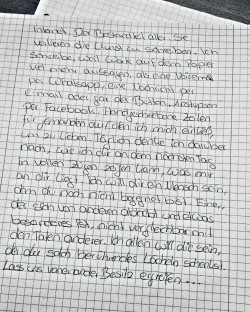 Internet. Der Bestandteil aller. Sie
verlieren die Kunst zu schreiben. Ich
schreibe, weil Worte auf dem Papier
viel mehr aussagen, als eine Voicemail
per WhatsApp, eine Nachricht per
e-mail oder gar der Button, Anstupsen
per Facebook. Handgeschriebene Zeilen
für jemanden auf den ich mich einließ,
um zu lieben. Täglich denke ich darüber
nach, wie ich dir an dem nächsten Tag
in vollen Zügen zeigen kann, was mir
an dir liegt. Ich will dir ein Mensch sein,
dem du noch nicht begegnet bist. Einer,
der sich von anderen abhebt und etwas
besonderes ist, nicht vergleichbar mit
den Taten anderer. Ich allein will die sein,
der du solch berührendes Lächeln schenkst.
Lass uns voneinander Besitz ergreifen....